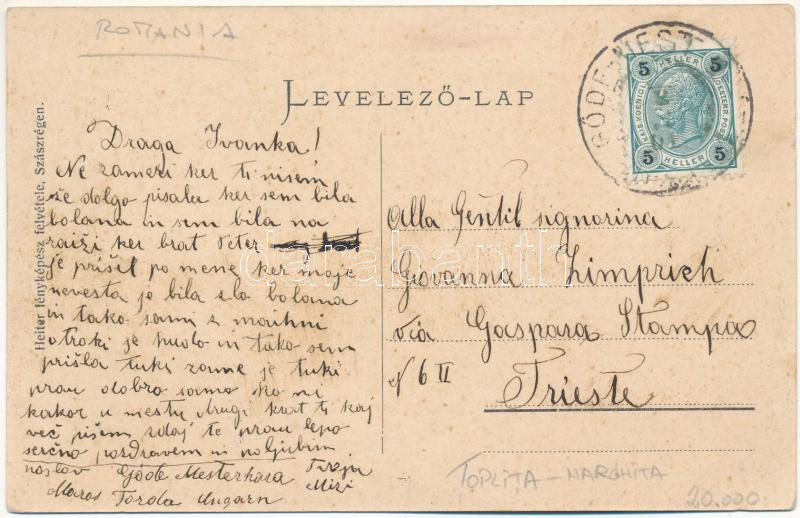 ROMANIA
LEVELEZŐ-LAP
GŐDE-MEST
5 HELLER 5
KAIS. KOENIGL. OESTERR. POST
5 HELLER 5
Heiter fényképész felvétele, Szászrégen.
Draga Ivanka!
Ne zameri ker ti nisem
že dolgo pisala ker sem bila
bolana in sem bila na
raiži ker brat Peter
je prišel po mene ker moje
nevesta je bila zlo bolana
in tako sama z maihni
otroki je hudo in tako sem
prišla tuki zame je tuki
prau dobro samo ko ni
kakor u mestu drugi krat ti kaj
več pišem zdaj te prau lepo
serčno pozdravem in poljubim
naslov Göde Mesterhaza Tvoja
Maros Torda Ungarn Mizi
Alla Gentil signorina
Giovanna Zimprich
via Gaspara Stampa
N 6 II
Trieste
TOPLITA - HARGHITA
20.000
darabanth